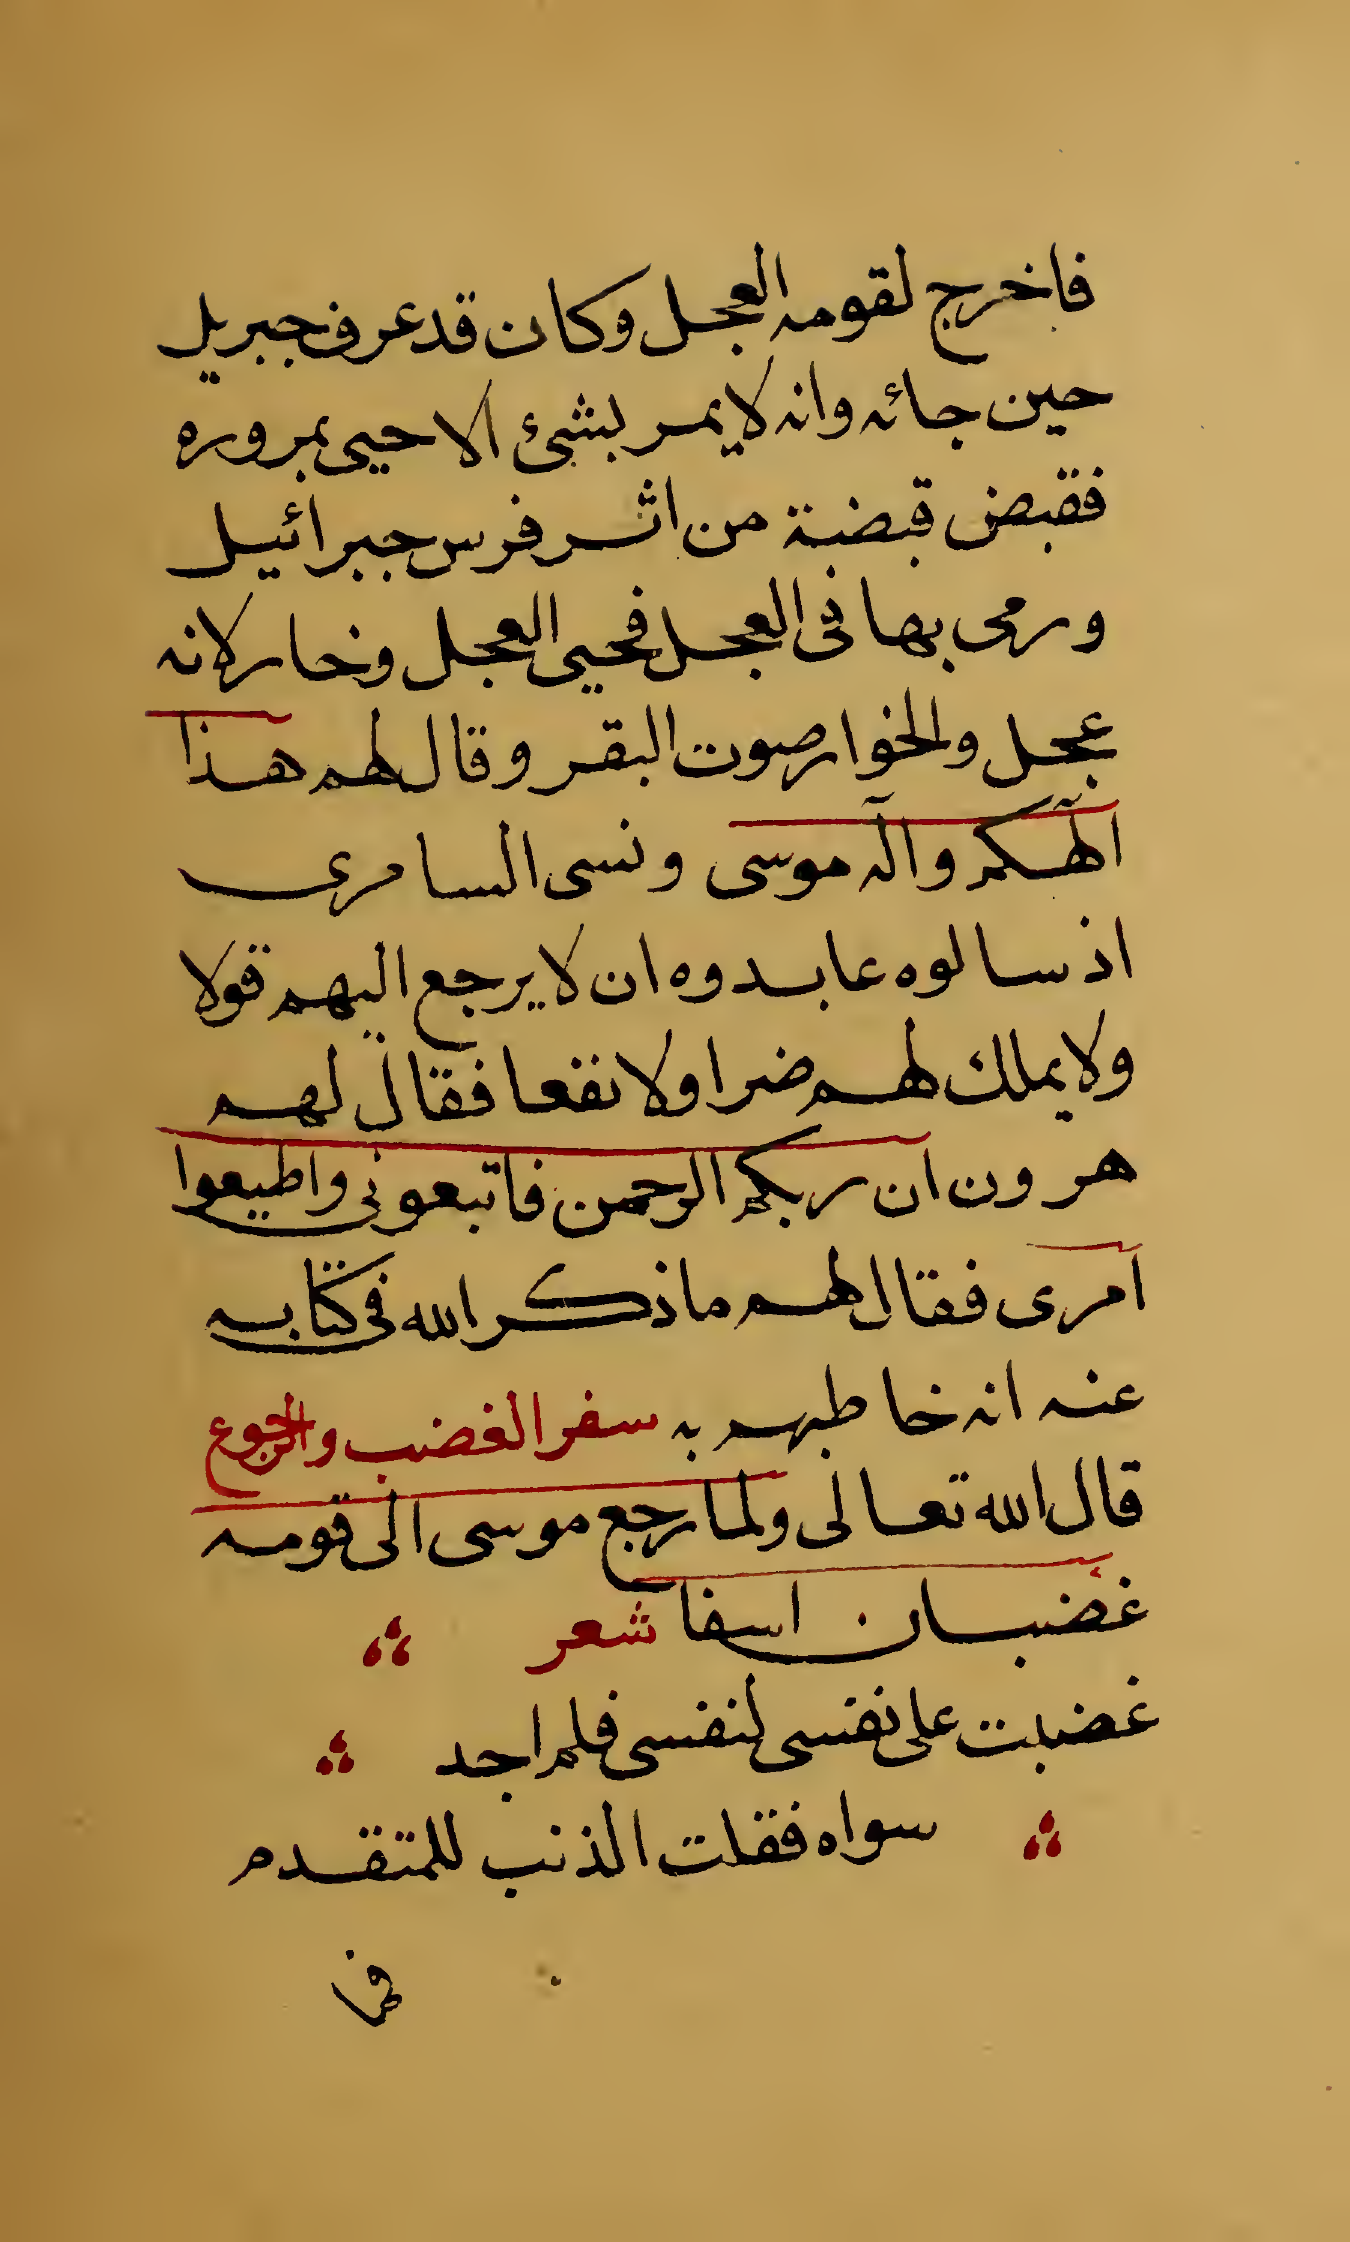 فاخرج لقومه العجل وكان قد عرف جبريل
حين جائه وانه لا يمر بشئ الا حيى بمروره
فقبض قبضة من اثر فرس جبرائيل
ورمى بها فى العجل فحيى العجل وخار لانه
عجل والخوار صوت البقر وقال لهم هذا
الٓهكم والٓه موسى ونسى السامرى
اذ سالوه عابدوه ان لا يرجع اليهم قولا
ولا يملك لهم ضرا ولا نفعا فقال لهم
هرون ان ربكم الرحمن فاتبعونى واطيعوا
امرى فقال لهم ما ذكر الله فى كتابه
عنه انه خاطبهم به سفر الغضب والرجوع
قال الله تعالى ولما رجع موسى الى قومه
غضبان اسفا شعر
غضبت على نفسى لنفسى فلم اجد
سواه فقلت الذنب للمتقدم